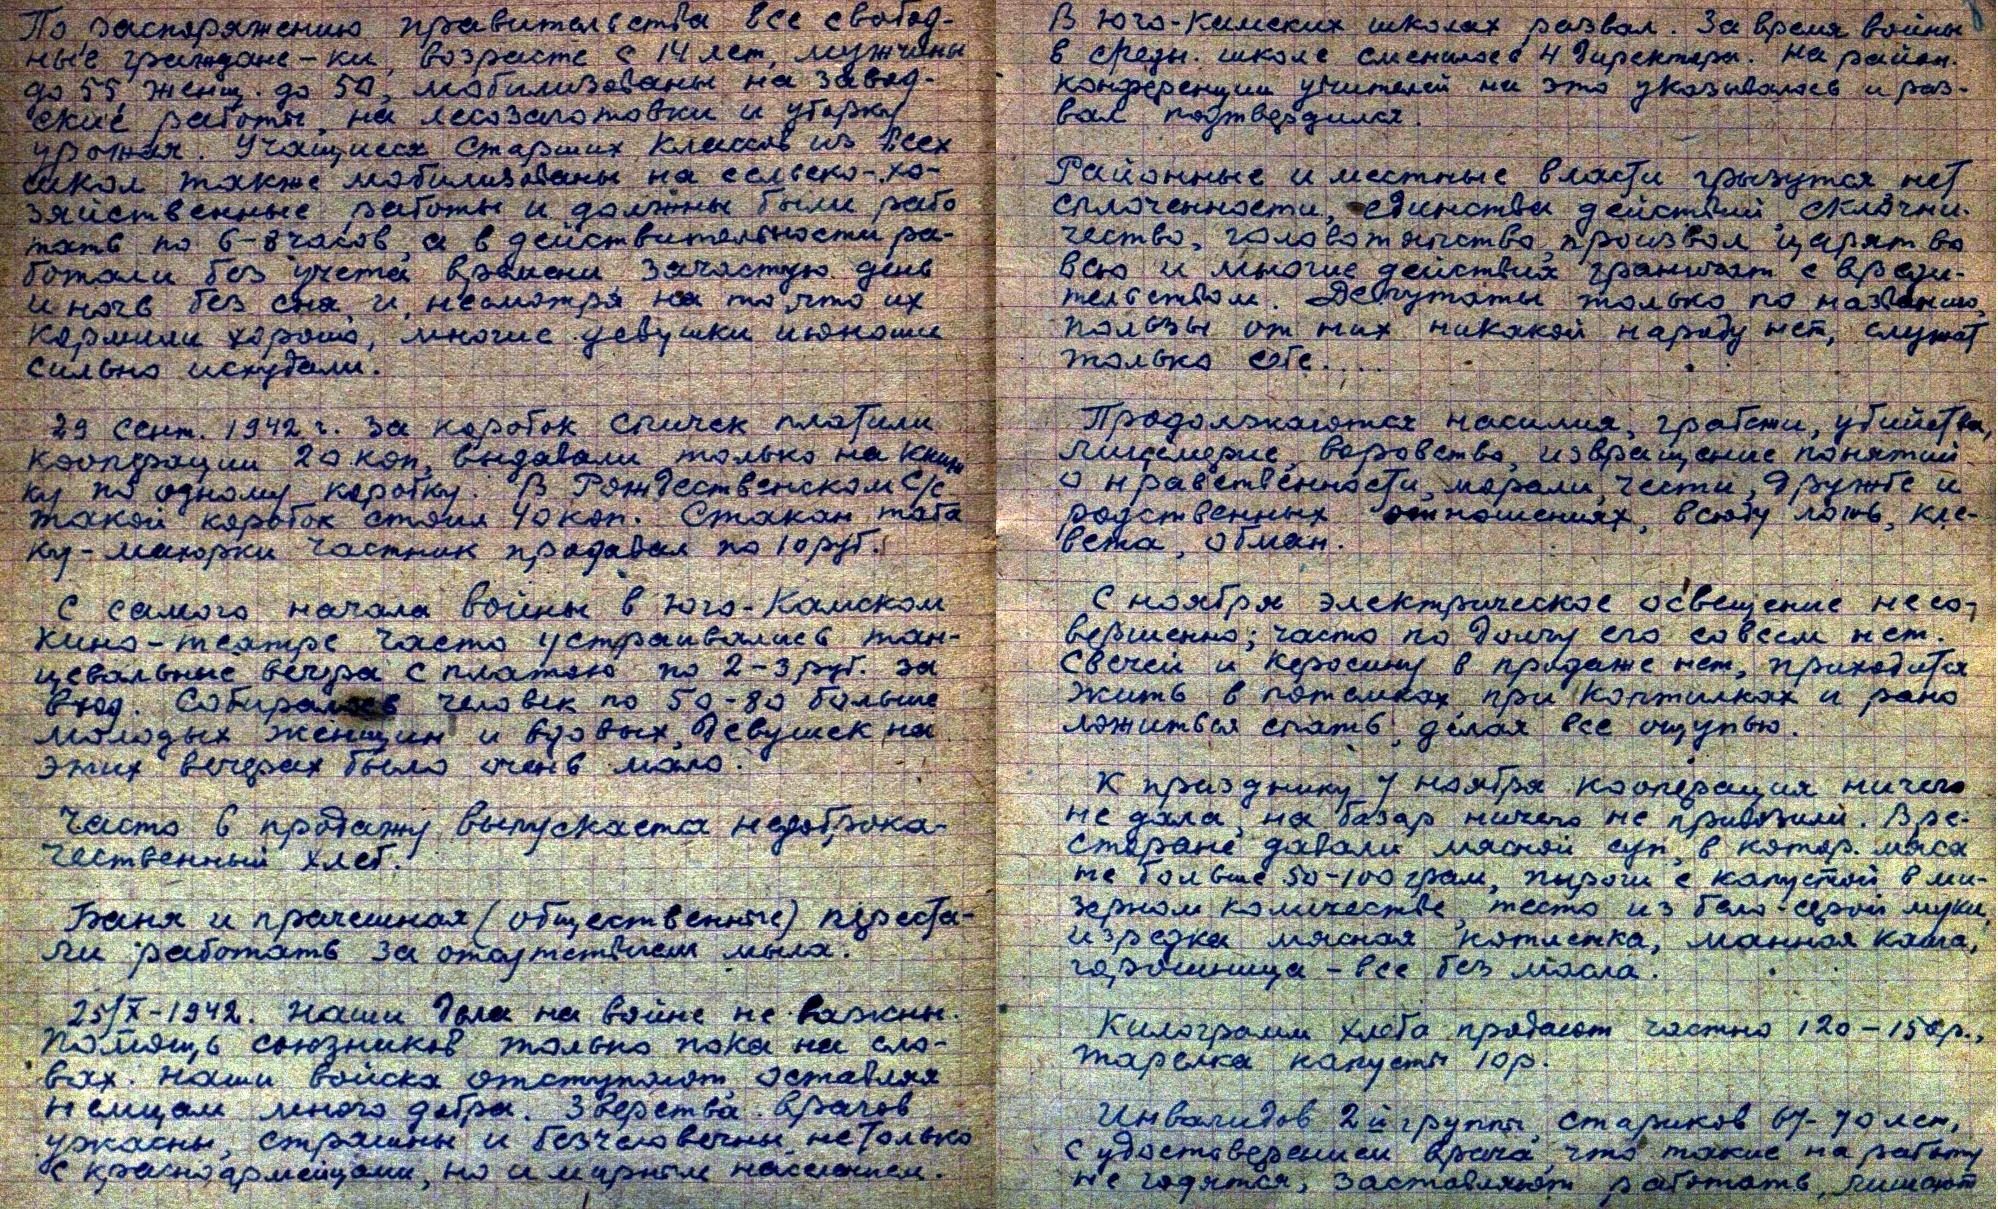 По распоряжению правительства все свобод-
ные граждане-ки, возрасте с 14 лет, мужчины
до 55, женщ. до 50, мобилизованы на завод-
ские работы, на лесозаготовки и уборку
урожая. Учащиеся старших классов из всех
школ также мобилизованы на сельско-хо-
зяйственные работы и должны были рабо
тать по 6-8 часов, а в действительности ра-
ботали без учета времени зачастую день
и ночь без сна, и, несмотря на то, что их
кормили хорошо, многие девушки и юноши
сильно исхудали.
29 сент. 1942 г. За коробок спичек платили
кооперации 20 коп, выдавали только на книж
ку по одному коробку. В Рождественском с/с
такой коробок стоил 40 коп. Стакан таба
ку-махорки частник продавал по 10 руб.
С самого начала войны в Юго-Камском
кино-театре часто устраивались тан-
цевальные вечера с платою по 2-3 руб. за
вход. Собиралось человек по 50-80 больше
молодых женщин и вдовых, девушек на
этих вечерах было очень мало.
Часто в продажу выпускается недоброка-
чественный хлеб.
Баня и прачешная (общественные) переста-
ли работать за отсутствием мыла.
25/X-1942. Наши дела на войне не важны.
Помощь союзников только пока на сло-
вах. Наши войска отступают, оставляя
немцам много добра. Зверства врагов
ужасны, страшны и безчеловечны, не только
с красноармейцами, но и мирным населением.
В Юго-Камских школах развал. За время войны
в средн. школе сменилось 4 директора. На район.
конференции учителей на это указывалось и раз-
вал подтвердился.
Районные и местные власти грызутся, нет
сплоченности, единства действий, склочни-
чество, головотяпство, произвол царят во
всю и многие действия граничат с вреди-
тельством. Депутаты только по названию,
пользы от них никакой народу нет, служат
только себе.....
Продолжаются насилия, грабежи, убийства,
лицемерие, воровство, извращение понятий
о нравственности, морали, чести, дружбе и
родственных отношениях, всюду ложь, кле-
вета, обман.
С ноября электрическое освещение несо-
вершенно; часто по долгу его совсем нет.
Свечей и керосину в продаже нет, приходится
жить в потемках при коптилках и рано
ложиться спать, делая все ощупью.
К празднику 7 ноября кооперация ничего
не дала, на базар ничего не привозили. В ре-
сторане давали мясной суп, в котор. мяса
не больше 50-100 грам, пироги с капустой в ми-
зерном количестве, тесто из бело-серой муки,
изредка мясная котлетка, манная каша,
горошница - все без масла.
Килограмм хлеба продают частно 120-150 р.,
тарелка капусты 10 р.
Инвалидов 2й группы, стариков 67-70 лет,
с удостоверением врача, что такие на работу
не годятся, заставляют работать, лишают